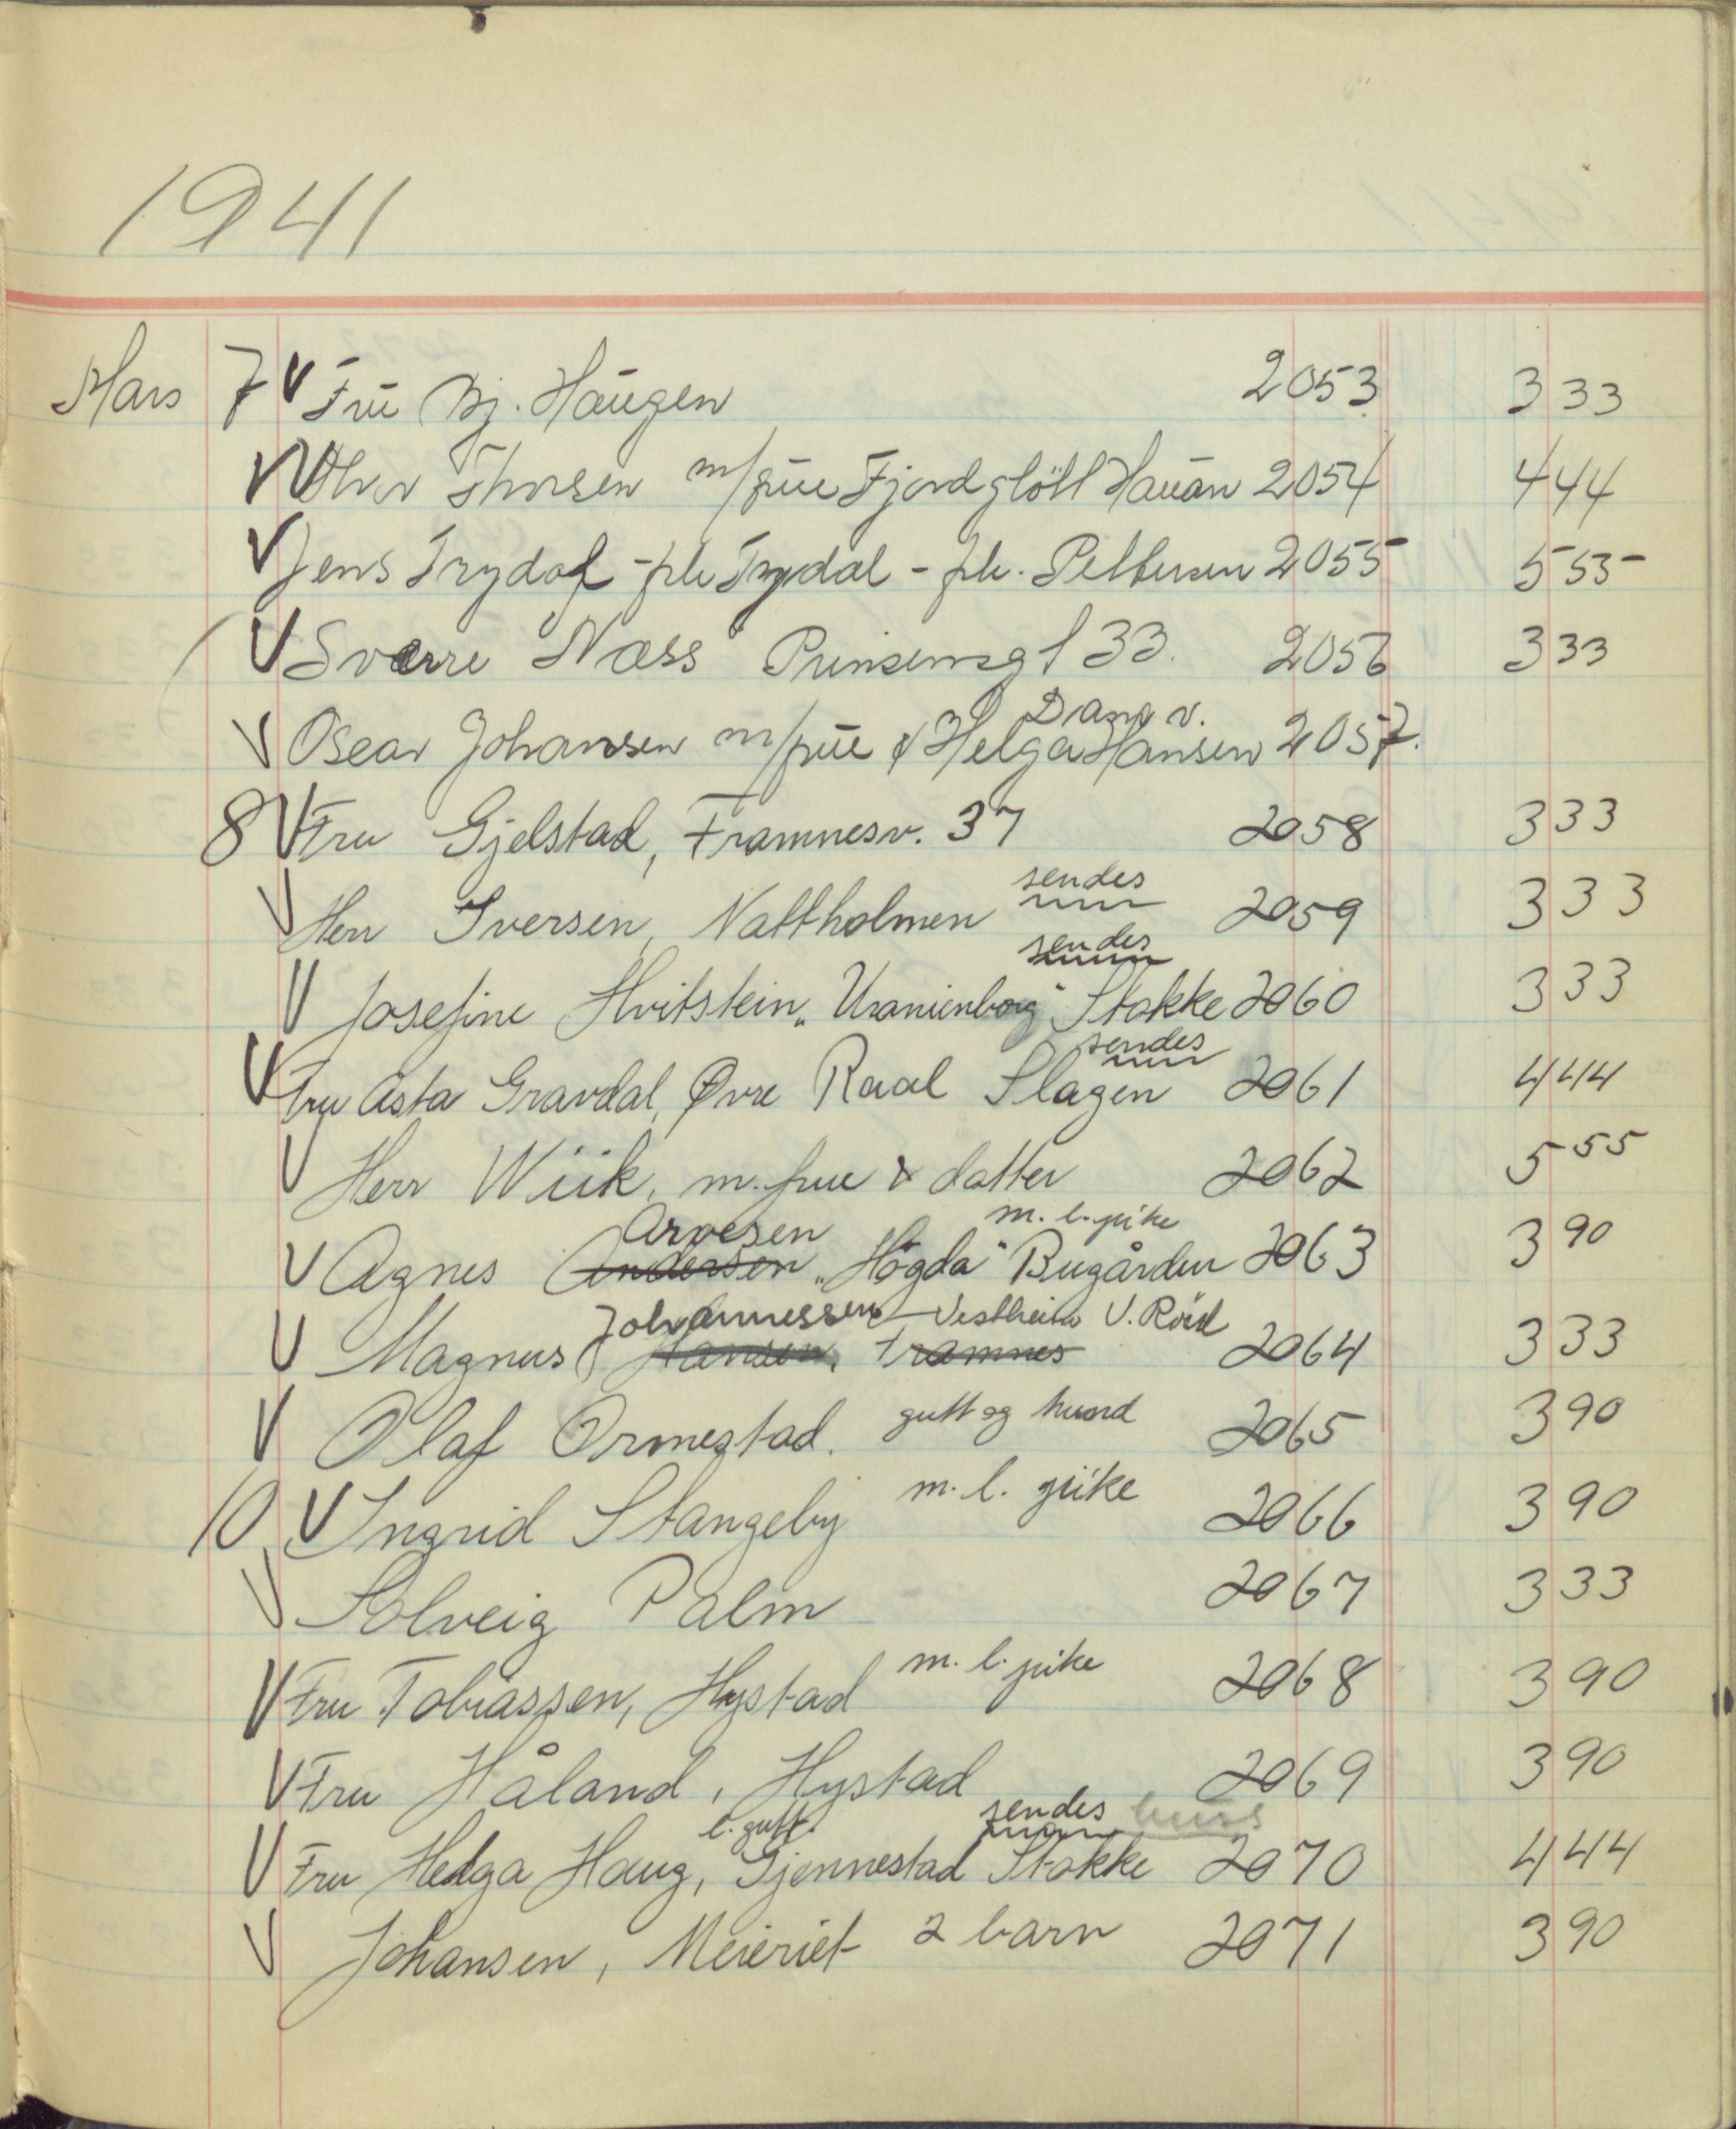 1941
Mars 7 V Frū Bj. Haūgen 2053 3 33
V Olav Thorsen m/frue Fjordglött Haūan 2054 4 44
V Jens Trydal - frk Trydal - frk. Pettersen 2055 5 55
V Sverre Næss Prinsensgt 33. 2056 3 33
Danav.
V Oscar Johansen m/frūe & Helga Hansen 2057.
8 V Fru Gjelstad, Framnesv. 37 2058 3 33
sendes
V Herr Iversen, Natholmen 2059 3 33
sendes
V Josefine Hvitstein „Uranienborg" Stokke 2060 3 33
sendes
V Fru Asta Gravdal, Øvre Raal Slagen 2061 4 44
V Herr Wiik, m. frue & datter 2062 5 55
Arvesen m. l. pike
V Agnes Andersen „Høgda" Bugården 2063 3 90
Johannessen Vestheim V. Röd
V Magnus Hansen, Framnes 2064 3 33
V Olaf Ormestad. gutt og hund 2065 3 90
10 V Ingrid Stangeby m. l. pike 2066 3 90
V Solveig Palm 2067 3 33
V Fru Tobiassen, Hystad m. l. pike 2068 3 90
V Fru Håland, Hystad 2069 3 90
l. gutt. sendes
V Fru Helga Haug, Gjennestad Stokke 2070 4 44
V Johansen, Meieriet 2 barn 2071 3 90